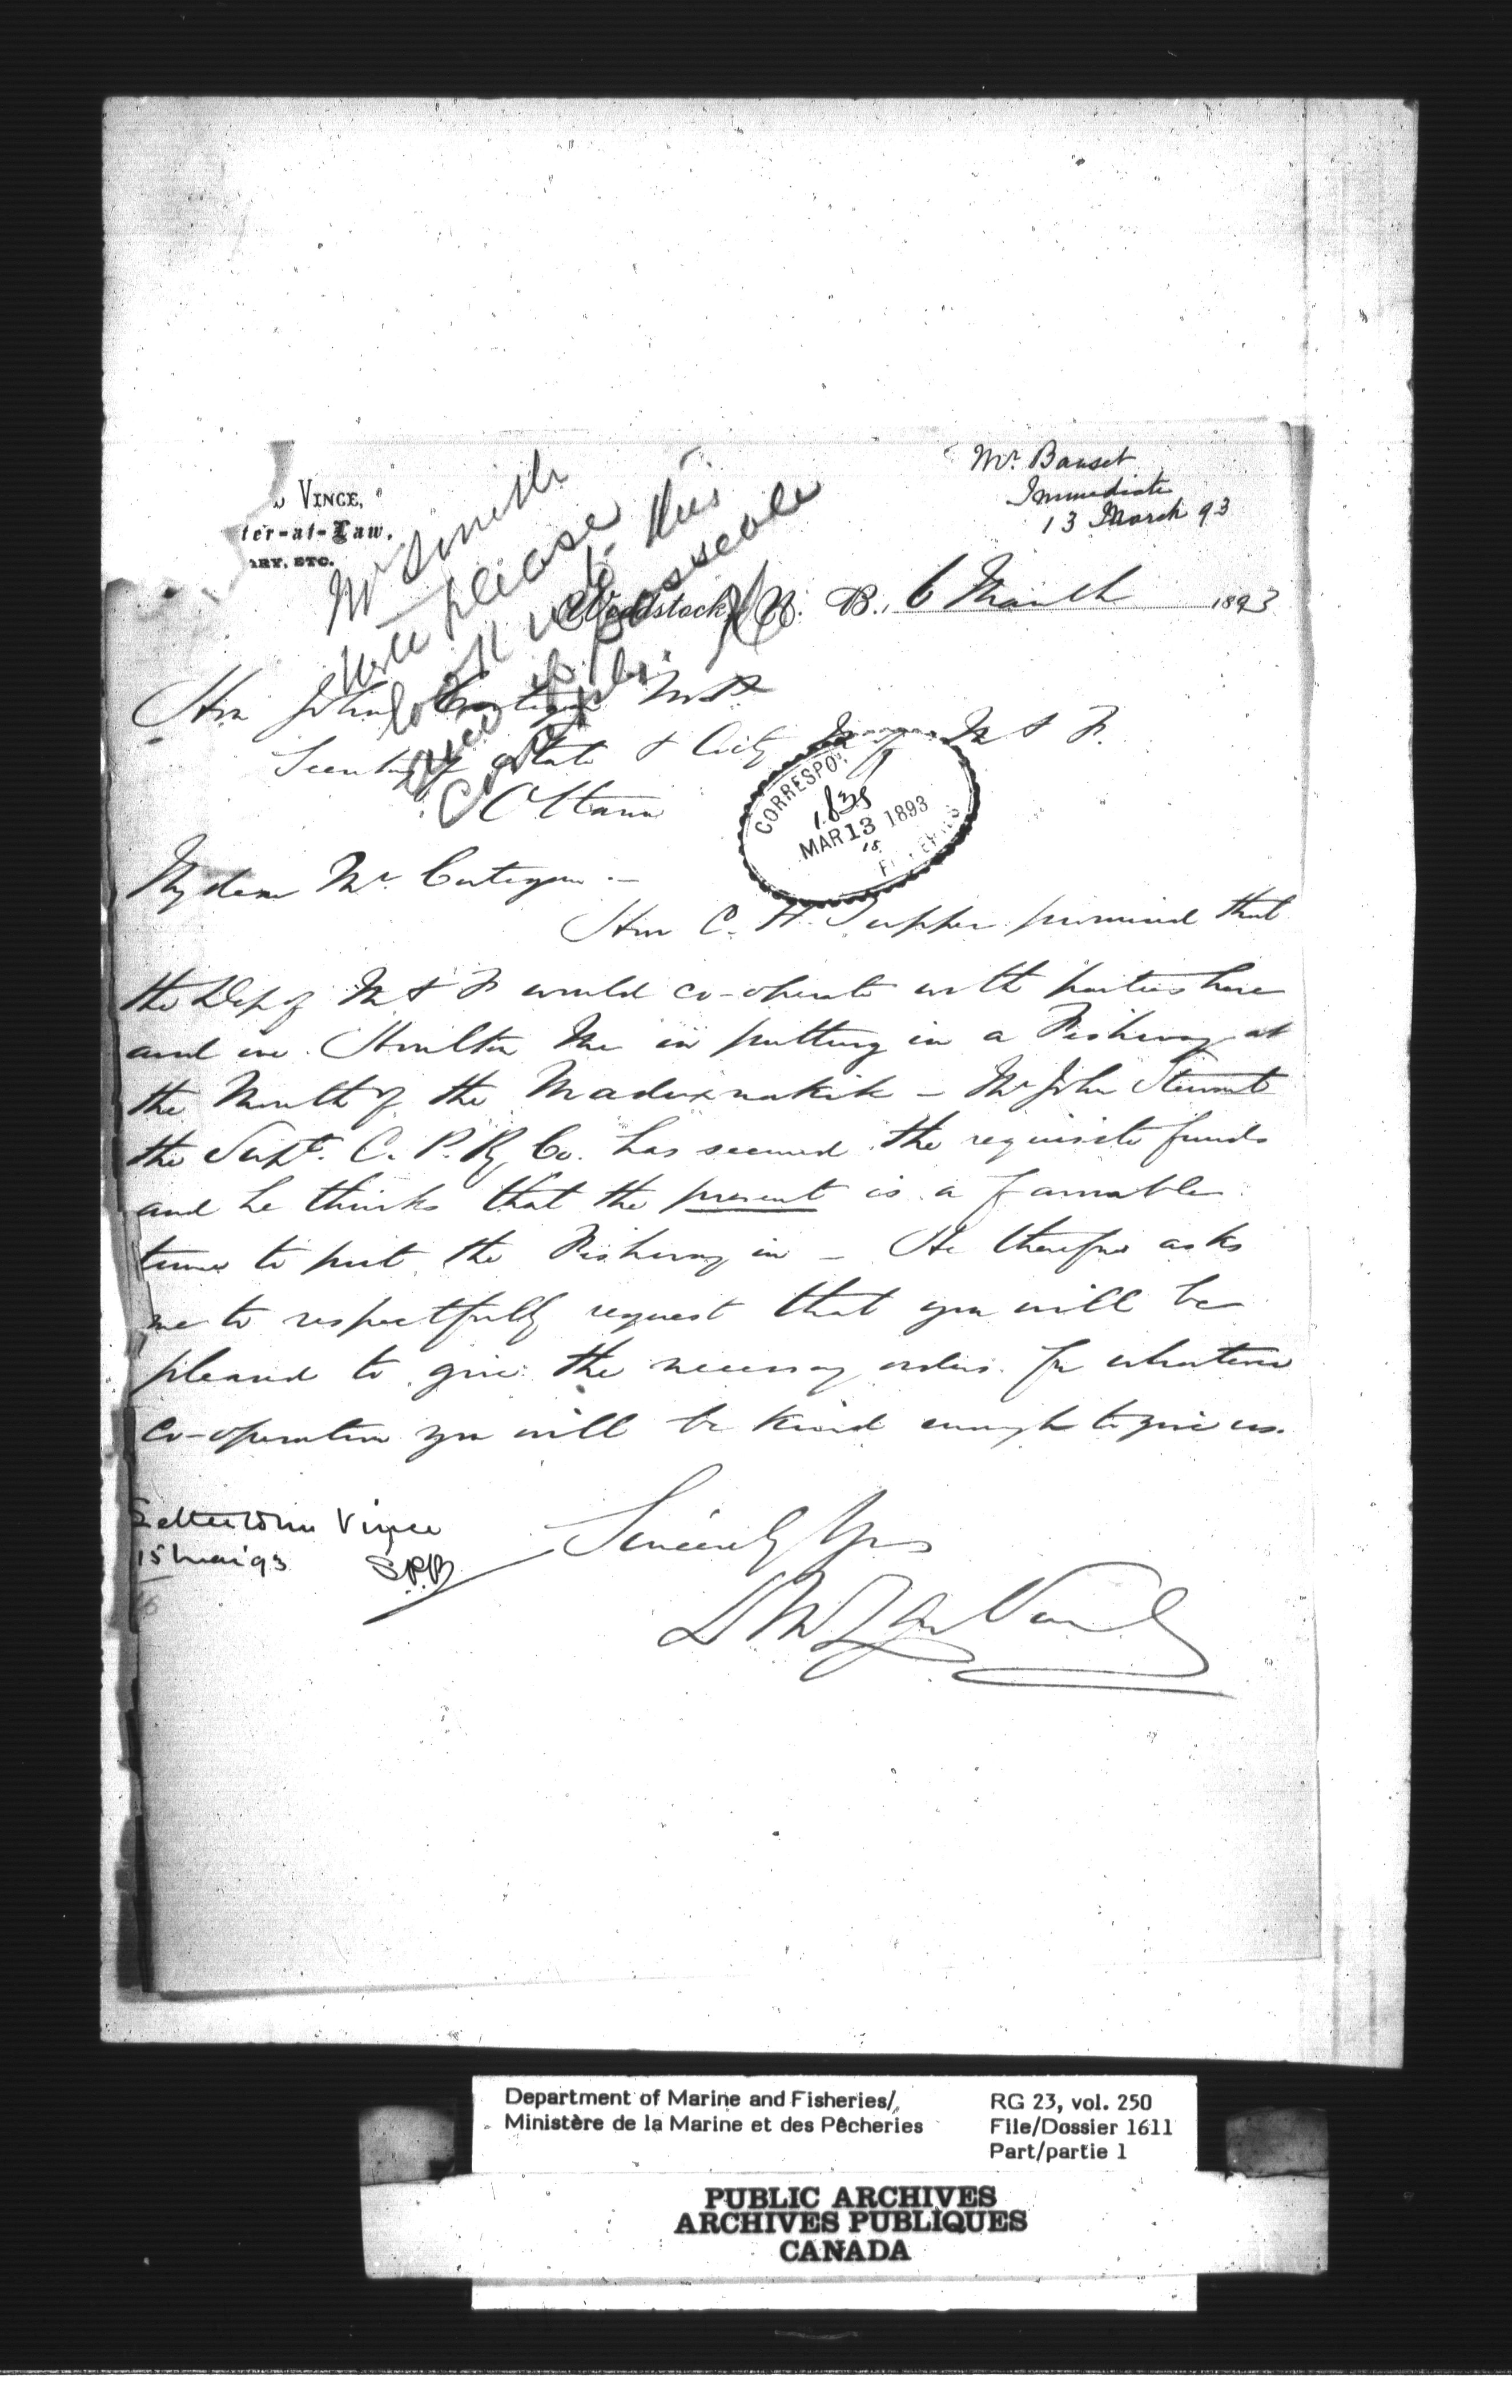 Mr. Bauset
Immediate
13 March 93
VINCE,
ter-at-Law.
ARY, ETC.
Mr Smith
Will please
look into this
and if possible
Woodstock, N. B., 6 March 1893
Hon John Costigan M.P.
Secretary of State & Actg M of M & F.
Ottawa
CORRESPO
1838
MAR 13 1893
My dear Mr. Costigan. –
Hon C. H. Tupper promised that
the Dep of M & F would co-operate with parties here
and in Houlton Me in putting in a Fishway at
the Mouth of the Maduxnakik – Mr John Stewart
the Supt. C. P. Ry Co. has secured the requisite funds
and he thinks that the present is a favorable
time to put the Fishway in – He therefore asks
me to respectfully request that you will be
pleased to give the necessary orders for whatever
co-operation you will be kind enough to give us.
Sincerely Yrs
Vince
Letter to Mr Vince
15 Mar 93 S.P.B.
Department of Marine and Fisheries/
Ministère de la Marine et des Pêcheries
RG 23, vol. 250
File/Dossier 1611
Part/partie 1
PUBLIC ARCHIVES
ARCHIVES PUBLIQUES
CANADA